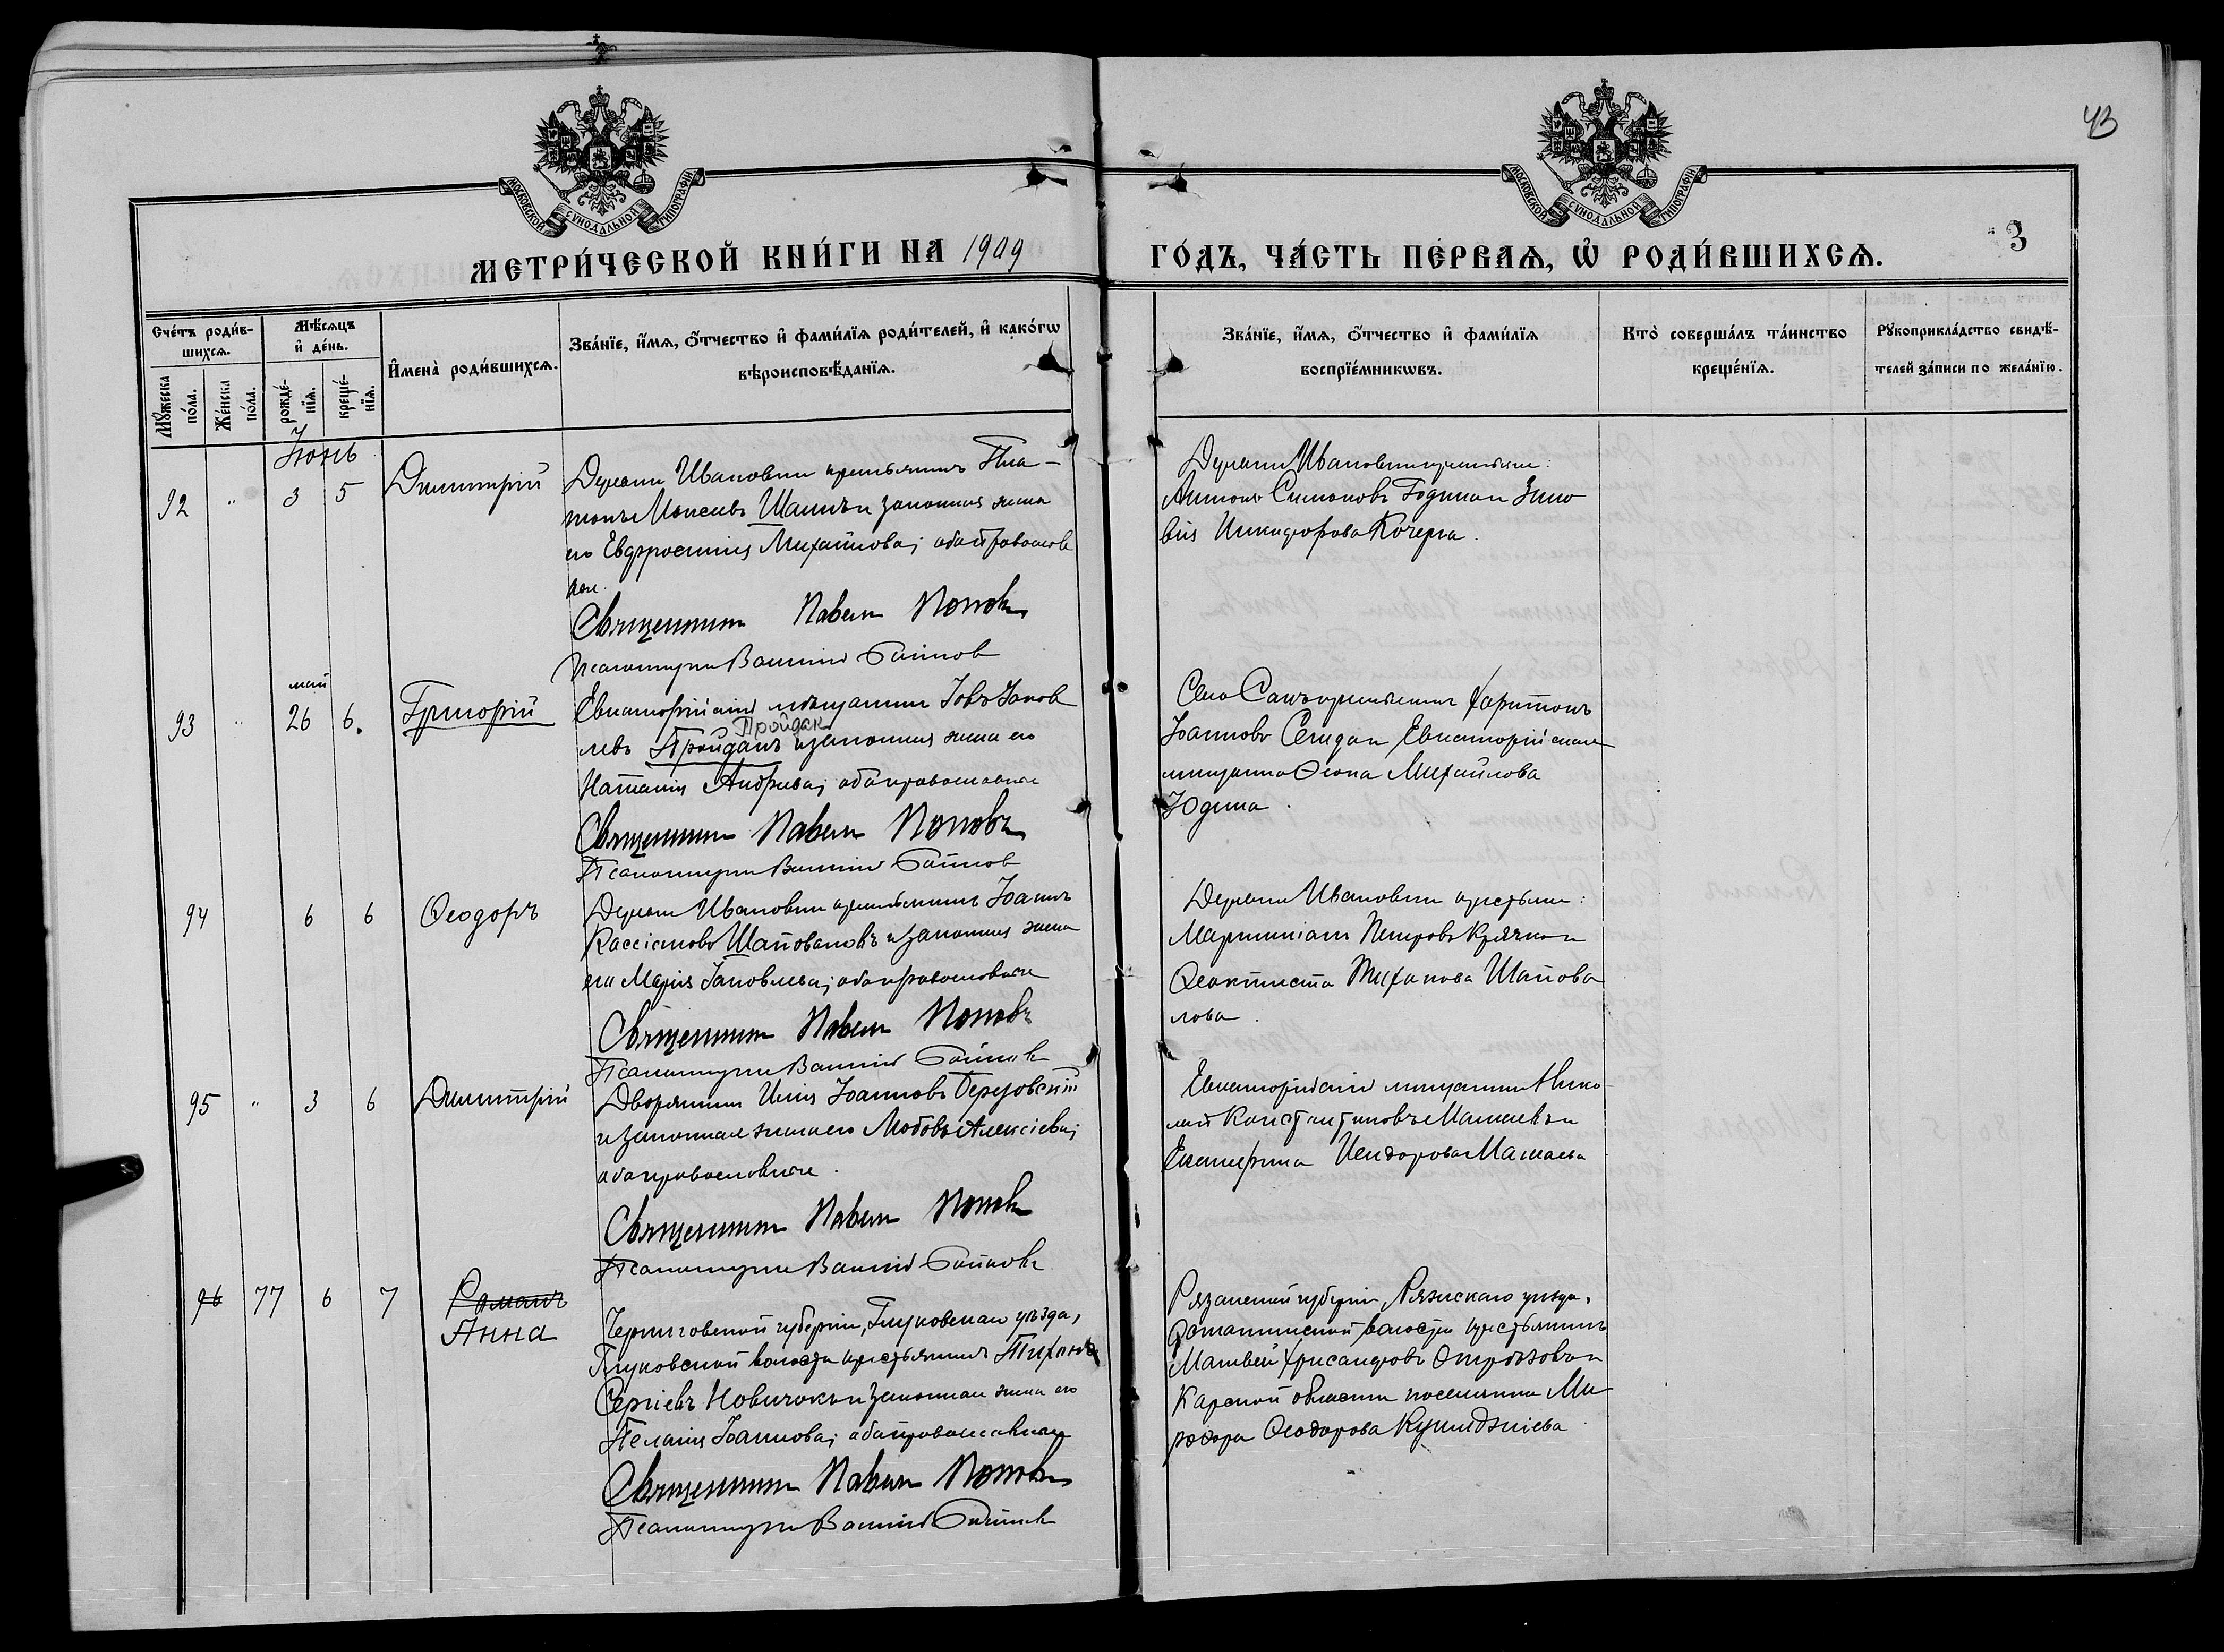 43
МОСКОВСКОЙ СУНОДАЛЬНОЙ ТИПОГРАФІИ
МОСКОВСКОЙ СУНОДАЛЬНОЙ ТИПОГРАФІИ
МЕТРИ́ЧЕСКОЙ КНИ́ГИ НА 1909
ГО́ДЪ, ЧА́СТЬ ПЕ́РВАѦ, Ѡ҆ РОДИ́ВШИХСѦ.
3
Сче́тъ роди́в-
шихсѧ.
Мѣ́сѧцъ
и҆ де́нь.
И҆мена̀ роди́вшихсѧ.
Зва́нїе, и҆́мѧ, ѻ҆́тчество и҆ фами́лїѧ роди́телей, и҆ како́гѡ
вѣроисповѣ́данїѧ.
Мꙋ́жеска
по́ла.
Же́нска
по́ла.
рожде́-
нїѧ.
креще́-
нїѧ.
Зва́нїе, и҆́мѧ, ѻ҆́тчество и҆ фами́лїѧ
воспрїе́мникѡвъ.
Кто̀ соверша́лъ та́инство
креще́нїѧ.
Рꙋкоприкла́дство свидѣ́-
телей за́писи по жела́нїю.
Іюнь
92 " 3 5 Димитрій
Деревни Ивановки крестьянинъ Пла-
тонъ Моисеевъ Шашъ и законная жена
его Евфросинія Михайлова; оба православ
ные.
Священникъ Павелъ Поповъ
Псаломщикъ Василій
Деревни Ивановки крестьяне:
Антонъ Симоновъ Годинъ и Зино
вія Никифорова Кочерга.
май
93 " 26 6. Григорій
Евпаторійскій мѣщанинъ Іовъ Іаков
Пройдак
левъ Пройданъ и законная жена его
Наталія Андреева; оба православные
Священникъ Павелъ Поповъ
Псаломщикъ Василій
Села Сакъ крестьянинъ Харитонъ
Іоанновъ и Евпаторійская
мещанка Ѳекла Михайлова
Юдина.
94 6 6 Ѳеодоръ
Деревни Ивановки крестьянинъ Іоаннъ
Кассіановъ Шаповаловъ и законная жена
его Марія Іаковлева; оба православные
Священникъ Павелъ Поповъ
Псаломщикъ Василій
Деревни Ивановки крестьяне:
Мартиніанъ Петровъ Крячко и
Ѳеоктиста Тихонова Шапова
лова.
95 " 3 6 Димитрій
Дворянинъ Илія Іоанновъ Березовскій
и законная жена его Любовь Алексіева;
оба православные.
Священникъ Павелъ Поповъ
Псаломщикъ Василій
Евпаторійскій мещанинъ Нико-
лай Константиновъ Мамаевъ и
Екатерина Исидорова Мамаева
96 77 6 7 Романъ
Анна
Черниговской губерніи, Глуховскаго уѣзда,
Глуховской волости крестьянинъ Тихонъ
Сергіевъ Новичокъ и законная жена его
Пелагія Іоаннова; оба православные
Священникъ Павелъ Поповъ
Псаломщикъ Василій
Рязанской губерніи, Ряжскаго уезда,
волости крестьянинъ
Матвей Хрисанфовъ и
Карской области поселянка Ми
Ѳеодорова